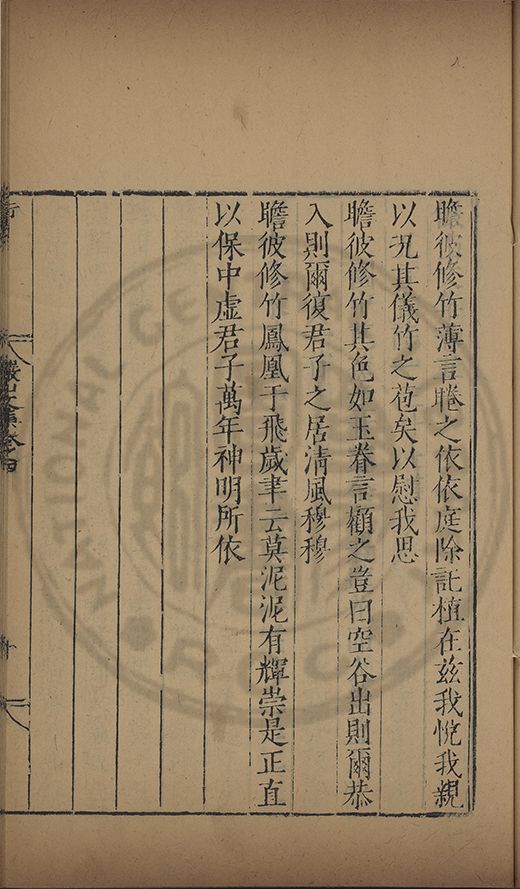 瞻彼修竹薄言睠之依依庭除託植在茲我悅我親
以况其儀竹之苞矣以慰我思
瞻彼修竹其色如玉眷言顧之豈曰空谷出則爾恭
入則爾復君子之居清風穆穆
瞻彼修竹鳳凰于飛歲聿云莫泥泥有輝崇是正直
以保中虛君子萬年神明所依